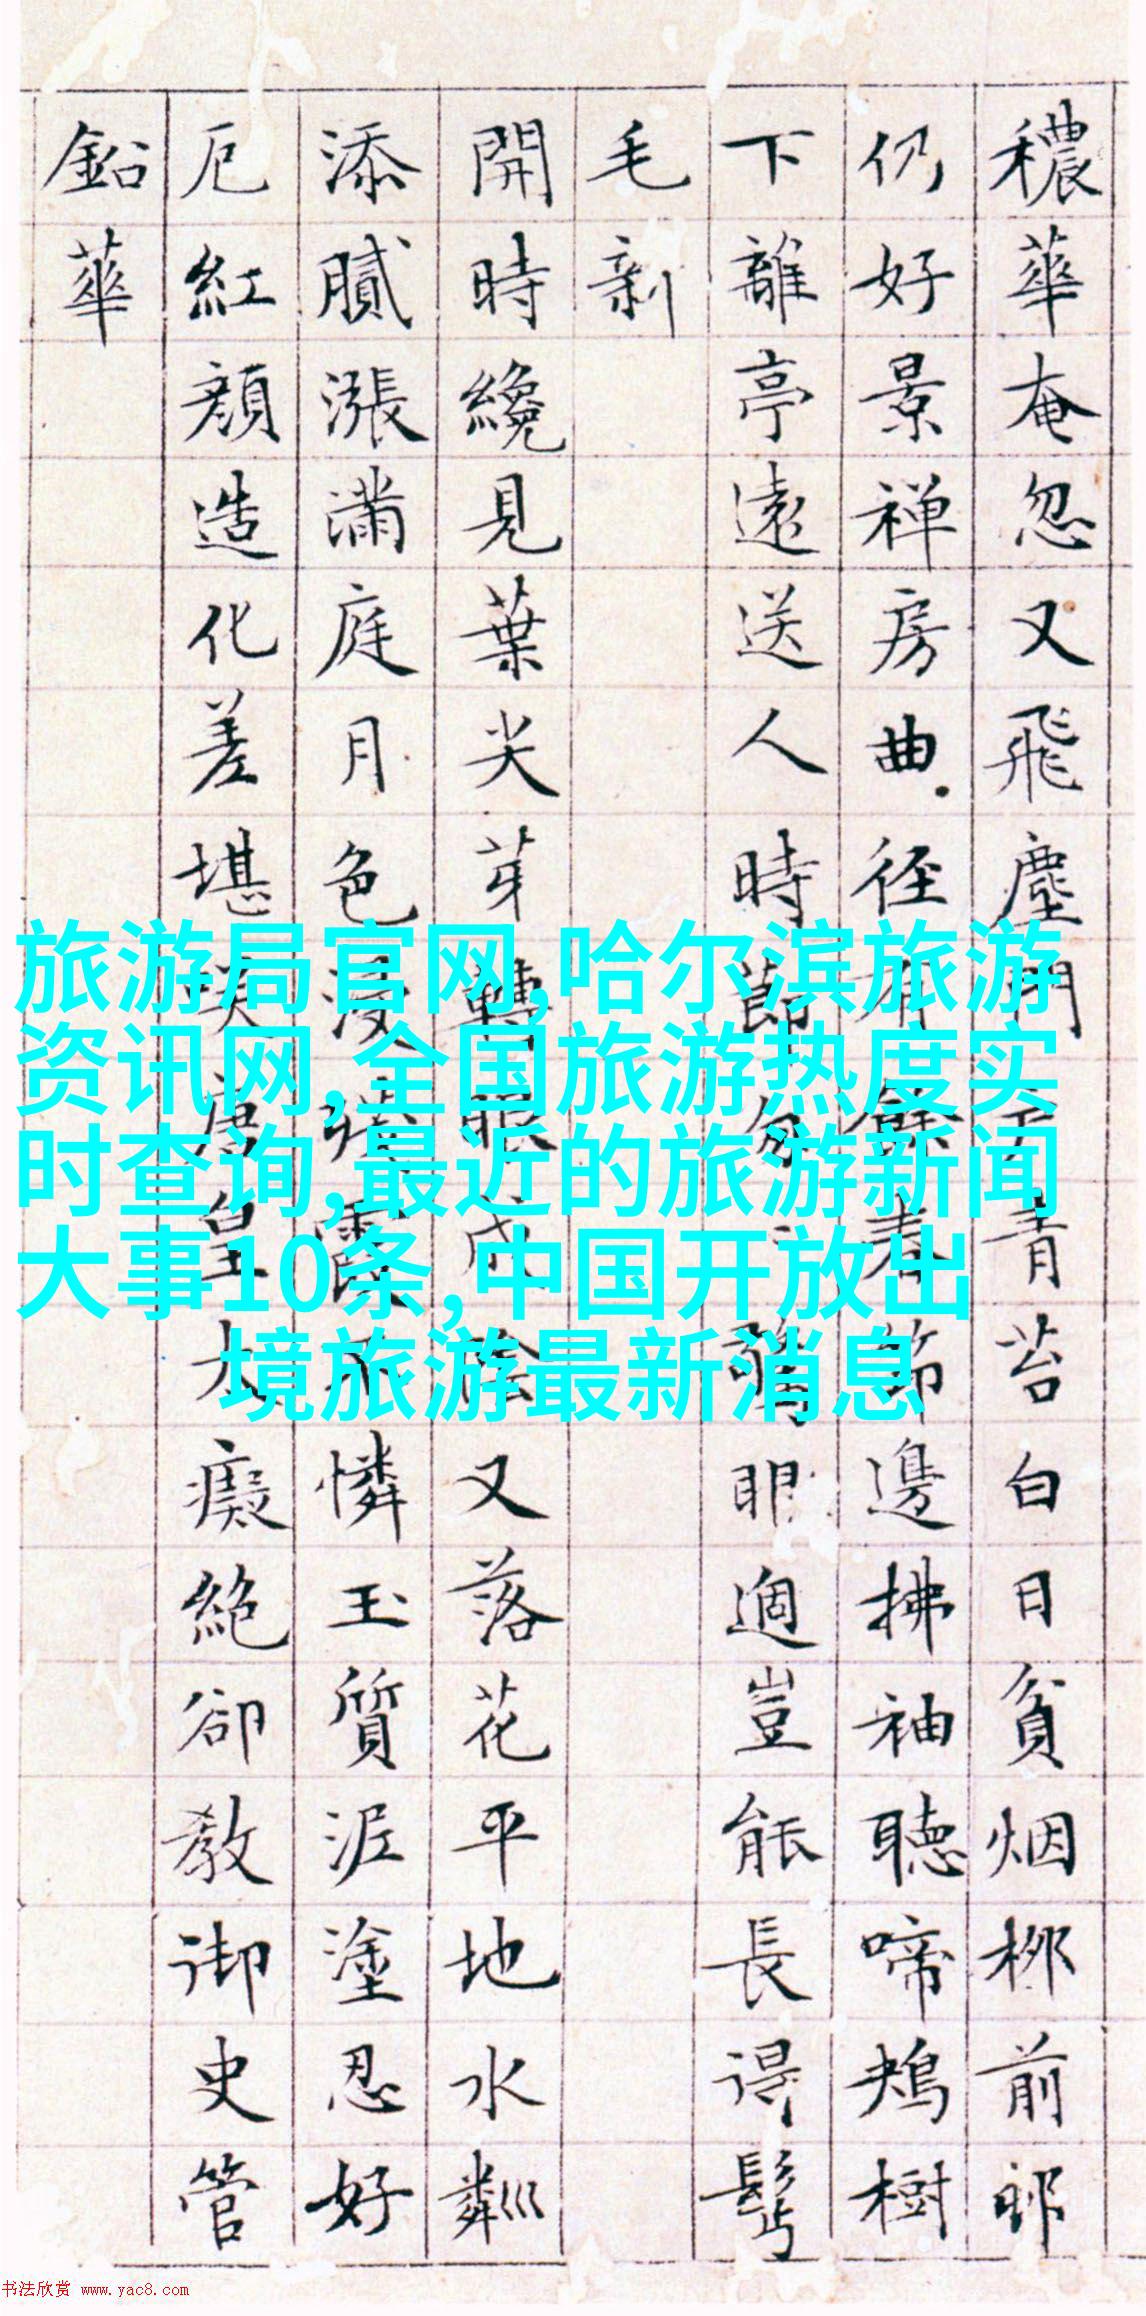 穠華奄忽又飛塵門青苔白日貧烟柳前郎
仍好景禅房曲径有餘春節邊拂袖聽啼鴂樹
下離亭遠送人時節匆眼適豈能長得鬢
毛新
開時纔見葉尖芽轉眼成陰又落花平地水粼
添膩漲滿庭月色浸霞憐玉質泥塗忍好
厄紅顏造化差堪笑唐皇太癡絕卻教御史管
鉛華
旅游局官网,哈尔滨旅游
资讯网,全国旅游热度实
时查询,最近的旅游新闻
大事10条,中国开放出
境旅游最新消息
书法欣赏 www.yac8.com